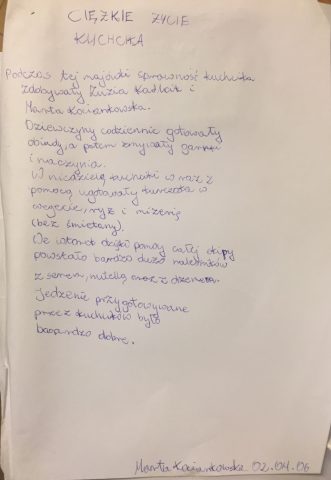 CIĘŻKIE ŻYCIE
KUCHCIKA
Podczas tej majówki sprawność kuchcika
zdobywały Zuzia Kadłcik i
Marta Kociankowska.
Dziewczyny codziennie gotowały
obiady, a potem zmywały garnki
i naczynia.
W niedzielę kuchciki wraz z
pomocą ugotowały kurczaka w
wegecie, ryż i mizerię
(bez śmietany).
We wtorek dzięki pomocy całej ekipy
powstało bardzo dużo naleśników
z serem, nutellą oraz z dżemem.
Jedzenie przygotowywane
przez kuchcików było
baaardzo dobre.
Marta Kociankowska 02.04.06